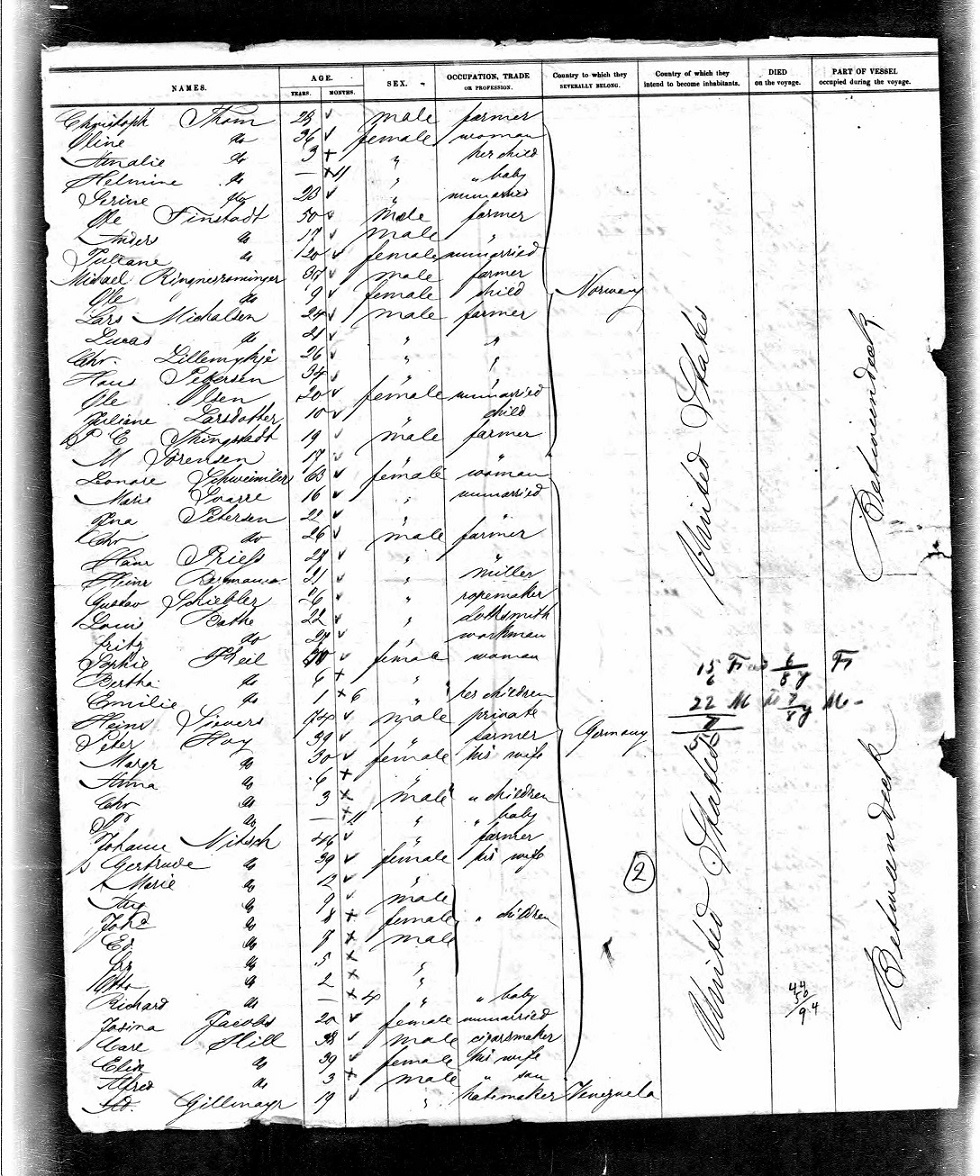 NAMES. AGE. SEX. OCCUPATION, TRADE OR PROFESSION. Country to which they SEVERALLY BELONG. Country of which they intend to become inhabitants. DIED on the voyage. PART OF VESSEL occupied during the voyage.
YEARS. MONTHS.
Christoph Thom 28 male farmer
Oline do 36 female woman
Amalie do 3 " her child
Helmine do — 11 " " baby
Serine do 20 " unmarried
Ole Finstadt 50 male farmer
Anders do 17 male "
Juliane do 20 female unmarried
Michael 37 male farmer
Ole do 9 female child
Norway
Lars Michalsen 24 male farmer
Lucas do 21 " "
Chr. 26 " "
Hans Petersen 34 " "
Ole Olsen 20 female unmarried
Juliane Larsdatter 10 " child
P E 19 male farmer
M Sorensen 17 " "
United States
Betweendeck
Leonore 63 female woman
Marie 16 " unmarried
Ana Petersen 22 " "
Chr do 26 male farmer
Hans 27 " "
Heinr 21 " miller
Gustav Schiebler 26 " ropemaker
Louis Bothe 22 "
Fritz do 27 " workman
Sophie Theil 30 female woman
Bertha do 6 "
Emilie do 1 6 " her children
Heinr Sievers 74 male private
Peter Hoy 39 " farmer
Germany
Margr do 30 female his wife
Anna do 6 "
Chr do 3 male " children
do — 11 " " baby
Johann Nitsch 46 " farmer
Gertrude do 39 female his wife
Marie do 12 "
Aug do 9 male
do 8 female " children
Ed do 7 male
do 5
Otto do 2 "
Richard do — 4 " " baby
Josina Jacobs 20 female unmarried
Carl Hill 38 male cigarsmaker
Elise do 39 female his wife
Alfred do 3 male " son
Ad. Gillmayr 19 " Venezuela
22 M
2
United States
Betweendeck
44
50
94